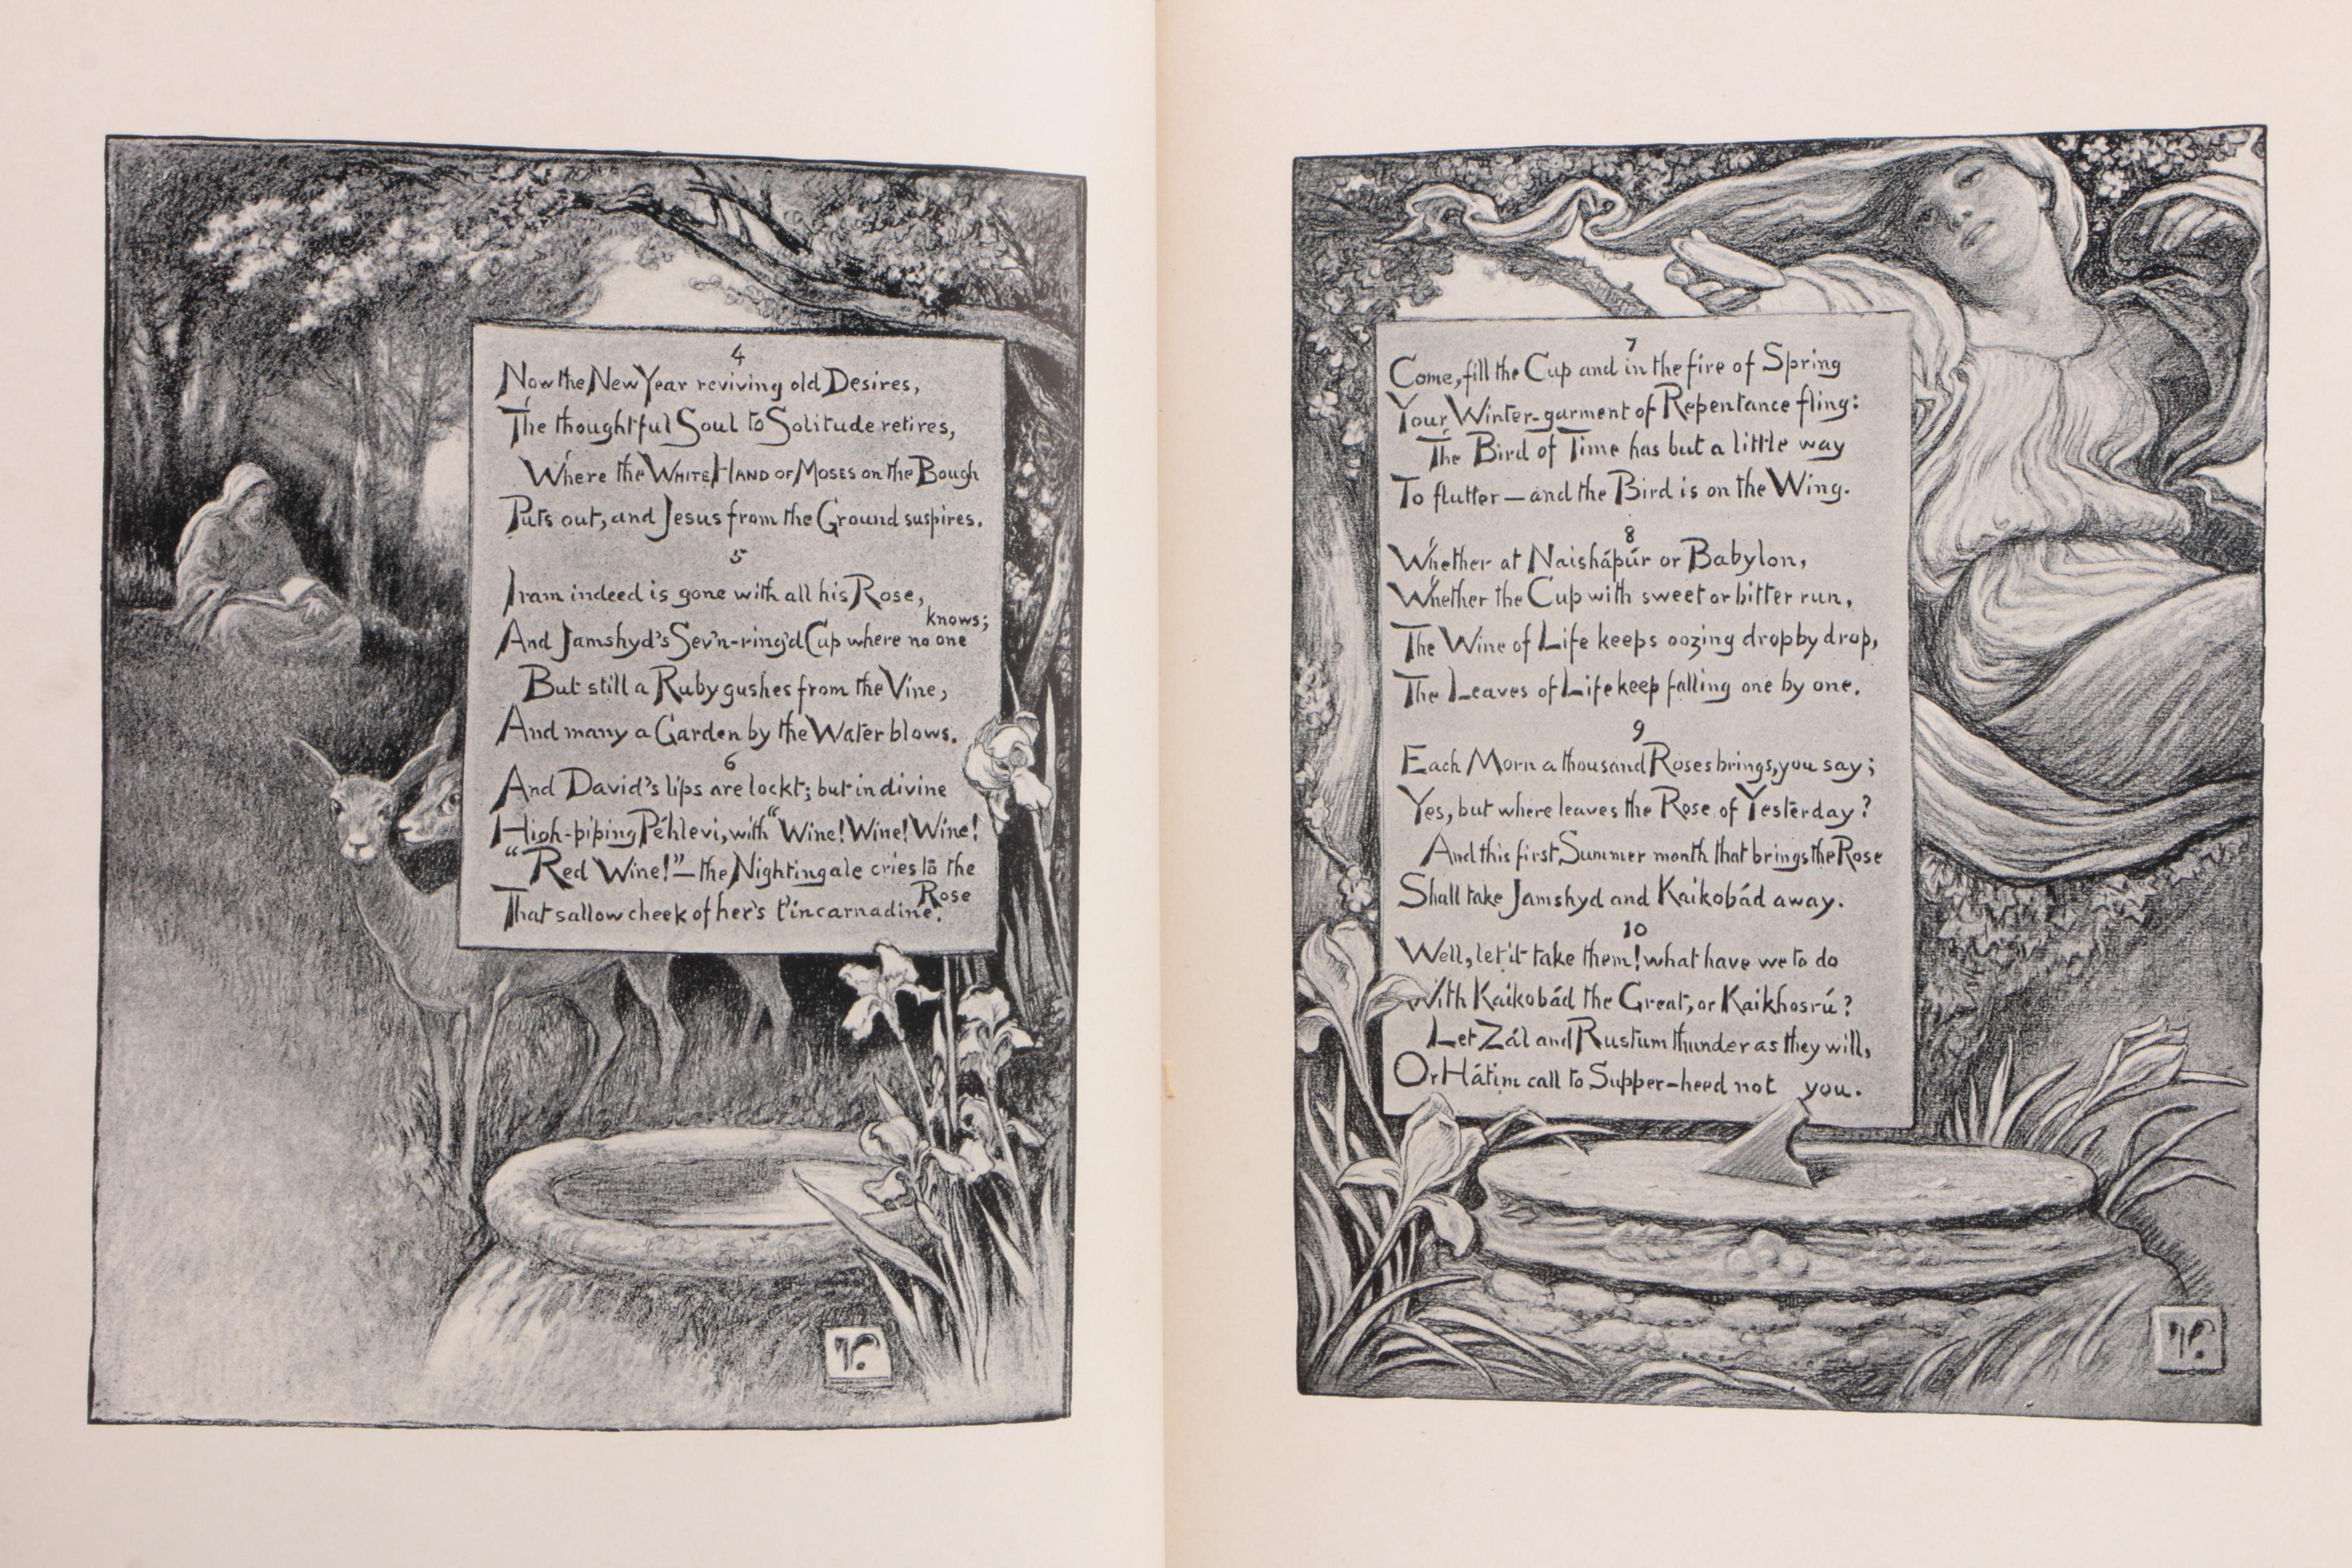 4
Now the New Year reviving old Desires,
The thoughtful Soul to Solitude retires,
Where the WHITE HAND OF MOSES on the Bough
Puts out, and Jesus from the Ground suspires.
5
Iram indeed is gone with all his Rose,
And Jamshyd's Sev'n-ring'd Cup where no one knows;
But still a Ruby gushes from the Vine,
And many a Garden by the Water blows.
6
And David's lips are lockt; but in divine
High-piping Péhlevi, with "Wine! Wine! Wine!
"Red Wine!"—the Nightingale cries to the Rose
That sallow cheek of her's t'incarnadine.
7
Come, fill the Cup and in the fire of Spring
Your Winter-garment of Repentance fling:
The Bird of Time has but a little way
To flutter—and the Bird is on the Wing.
8
Whether at Naishápúr or Babylon,
Whether the Cup with sweet or bitter run,
The Wine of Life keeps oozing drop by drop,
The Leaves of Life keep falling one by one.
9
Each Morn a thousand Roses brings, you say;
Yes, but where leaves the Rose of Yesterday?
And this first Summer month that brings the Rose
Shall take Jamshyd and Kaikobád away.
10
Well, let it take them! what have we to do
With Kaikobád the Great, or Kaikhosrú?
Let Zál and Rustum thunder as they will,
Or Hátim call to Supper—heed not you.